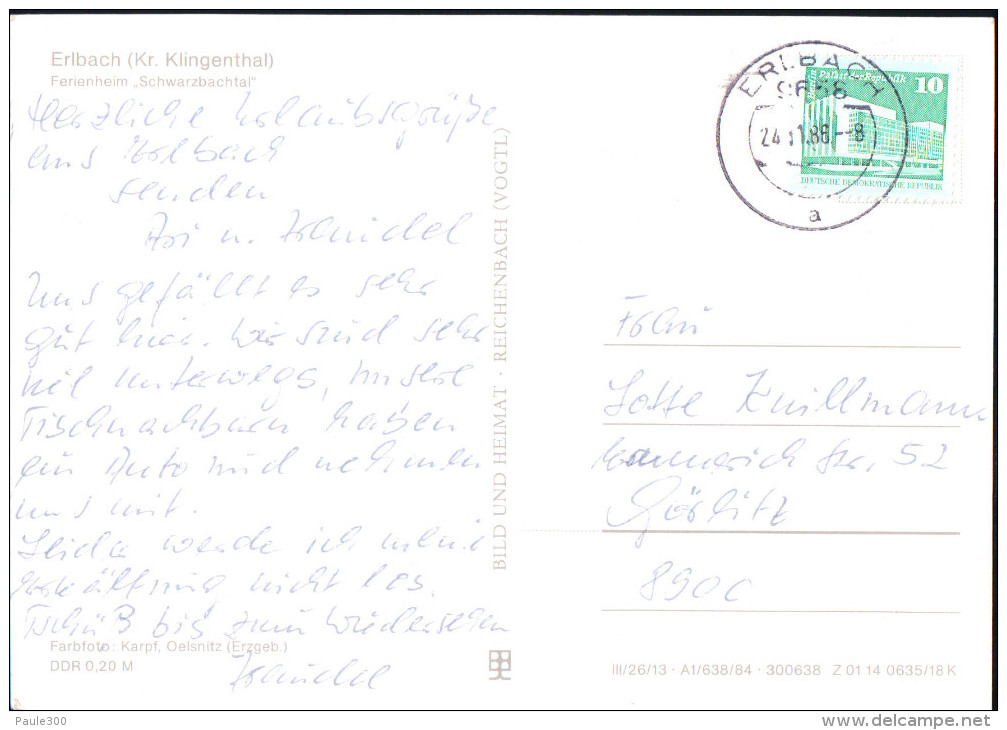 Erlbach (Kr. Klingenthal)
Ferienheim „Schwarzbachtal"
Herzliche Urlaubsgrüße
aus Erlbach
senden
u.
Uns gefällt es sehr
gut hier. Wir sind sehr
viel unterwegs, unsere
Tischnachbarn haben
ein Auto und nehmen
uns mit.
Leider werde ich meine
Erkältung nicht los.
Tschüß bis zum Wiedersehen
Farbfoto: Karpf, Oelsnitz (Erzgeb.)
DDR 0,20 M
BILD UND HEIMAT · REICHENBACH (VOGTL)
ERLBACH
9656
24. 1.86.--8
a
Palast der Republik
10
DEUTSCHE DEMOKRATISCHE REPUBLIK
Frau
Lotte Knillmann
str. 52
Görlitz
8900
III/26/13 · A1/638/84 · 300638 Z 01 14 0635/18 K
Paule300
www.delcampe.net